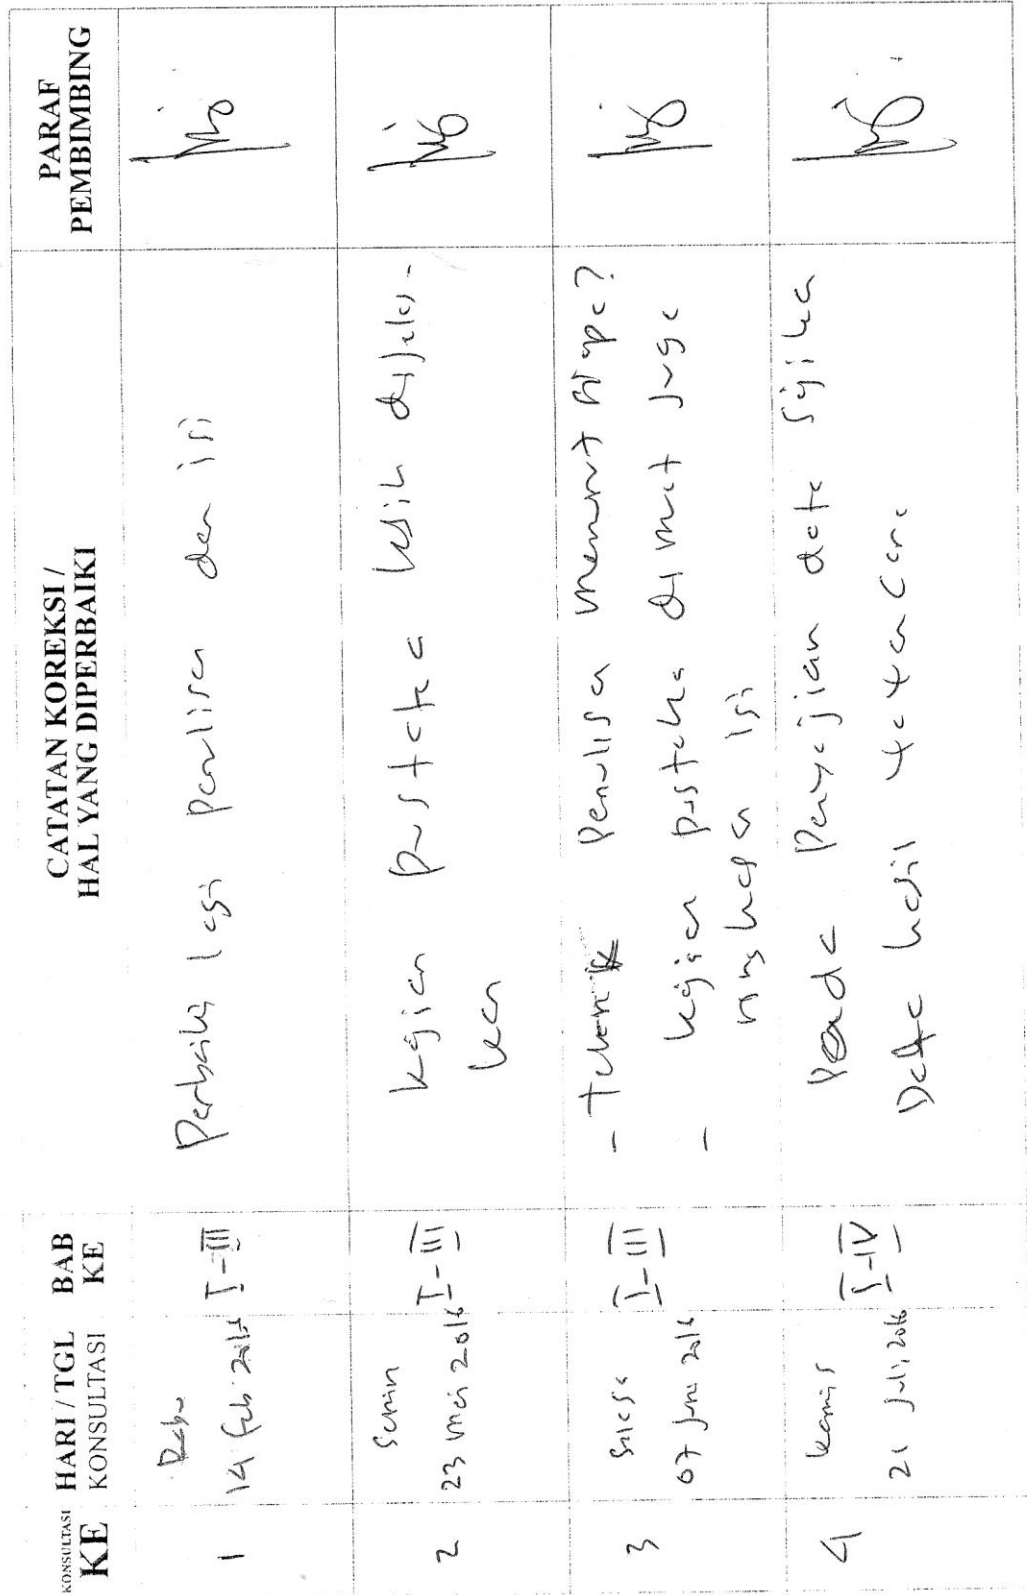 KONSULTASI KE
HARI / TGL KONSULTASI
BAB KE
CATATAN KOREKSI /
HAL YANG DIPERBAIKI
PARAF PEMBIMBING
1
Rabu
14 Feb 2016
I-III
Perbaiki lagi penulisan dan isi
2
Senin
23 Mei 2016
I-III
Kajian pustaka lebih dijelas-
kan
3
Selasa
07 Juni 2016
I-III
- Teknik Penulisan menurut siapa?
- Kajian pustaka dimuat juga
ringkasan isi
4
Kamis
21 Juli 2016
I-IV
Pada Penyajian data sajikan
Data hasil wawancara